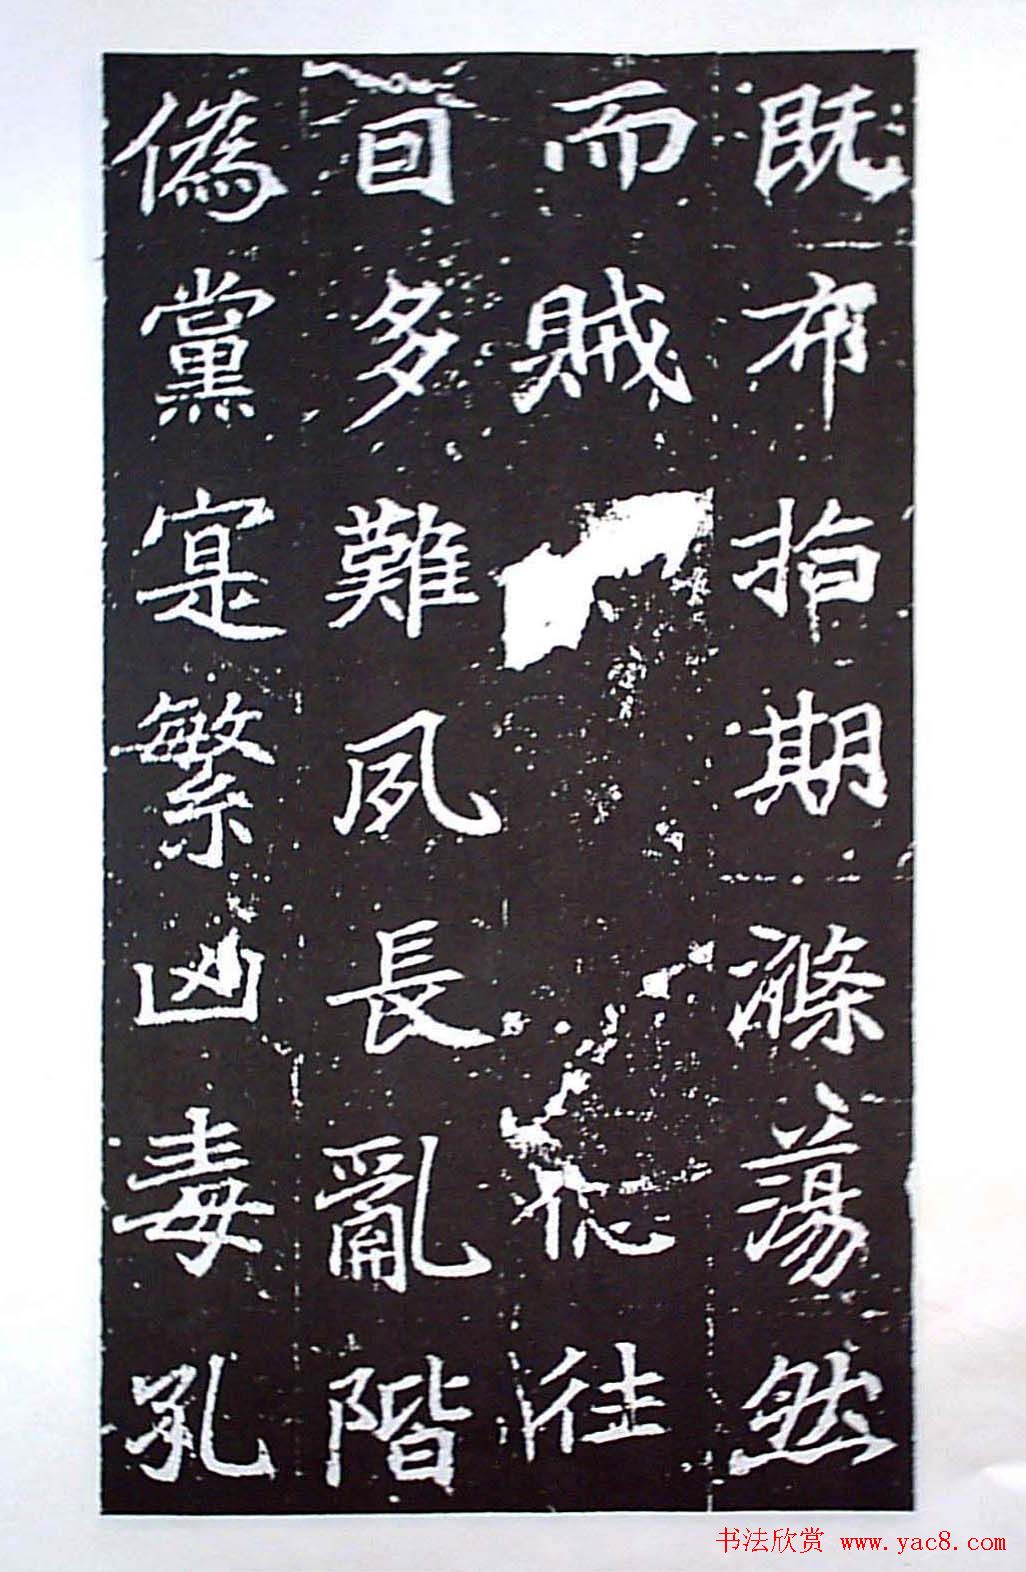 既布指期滌蕩然
而賊忙往
因多難夙長亂階
偽黨寔繁凶毒孔
书法欣赏 www.yac8.com